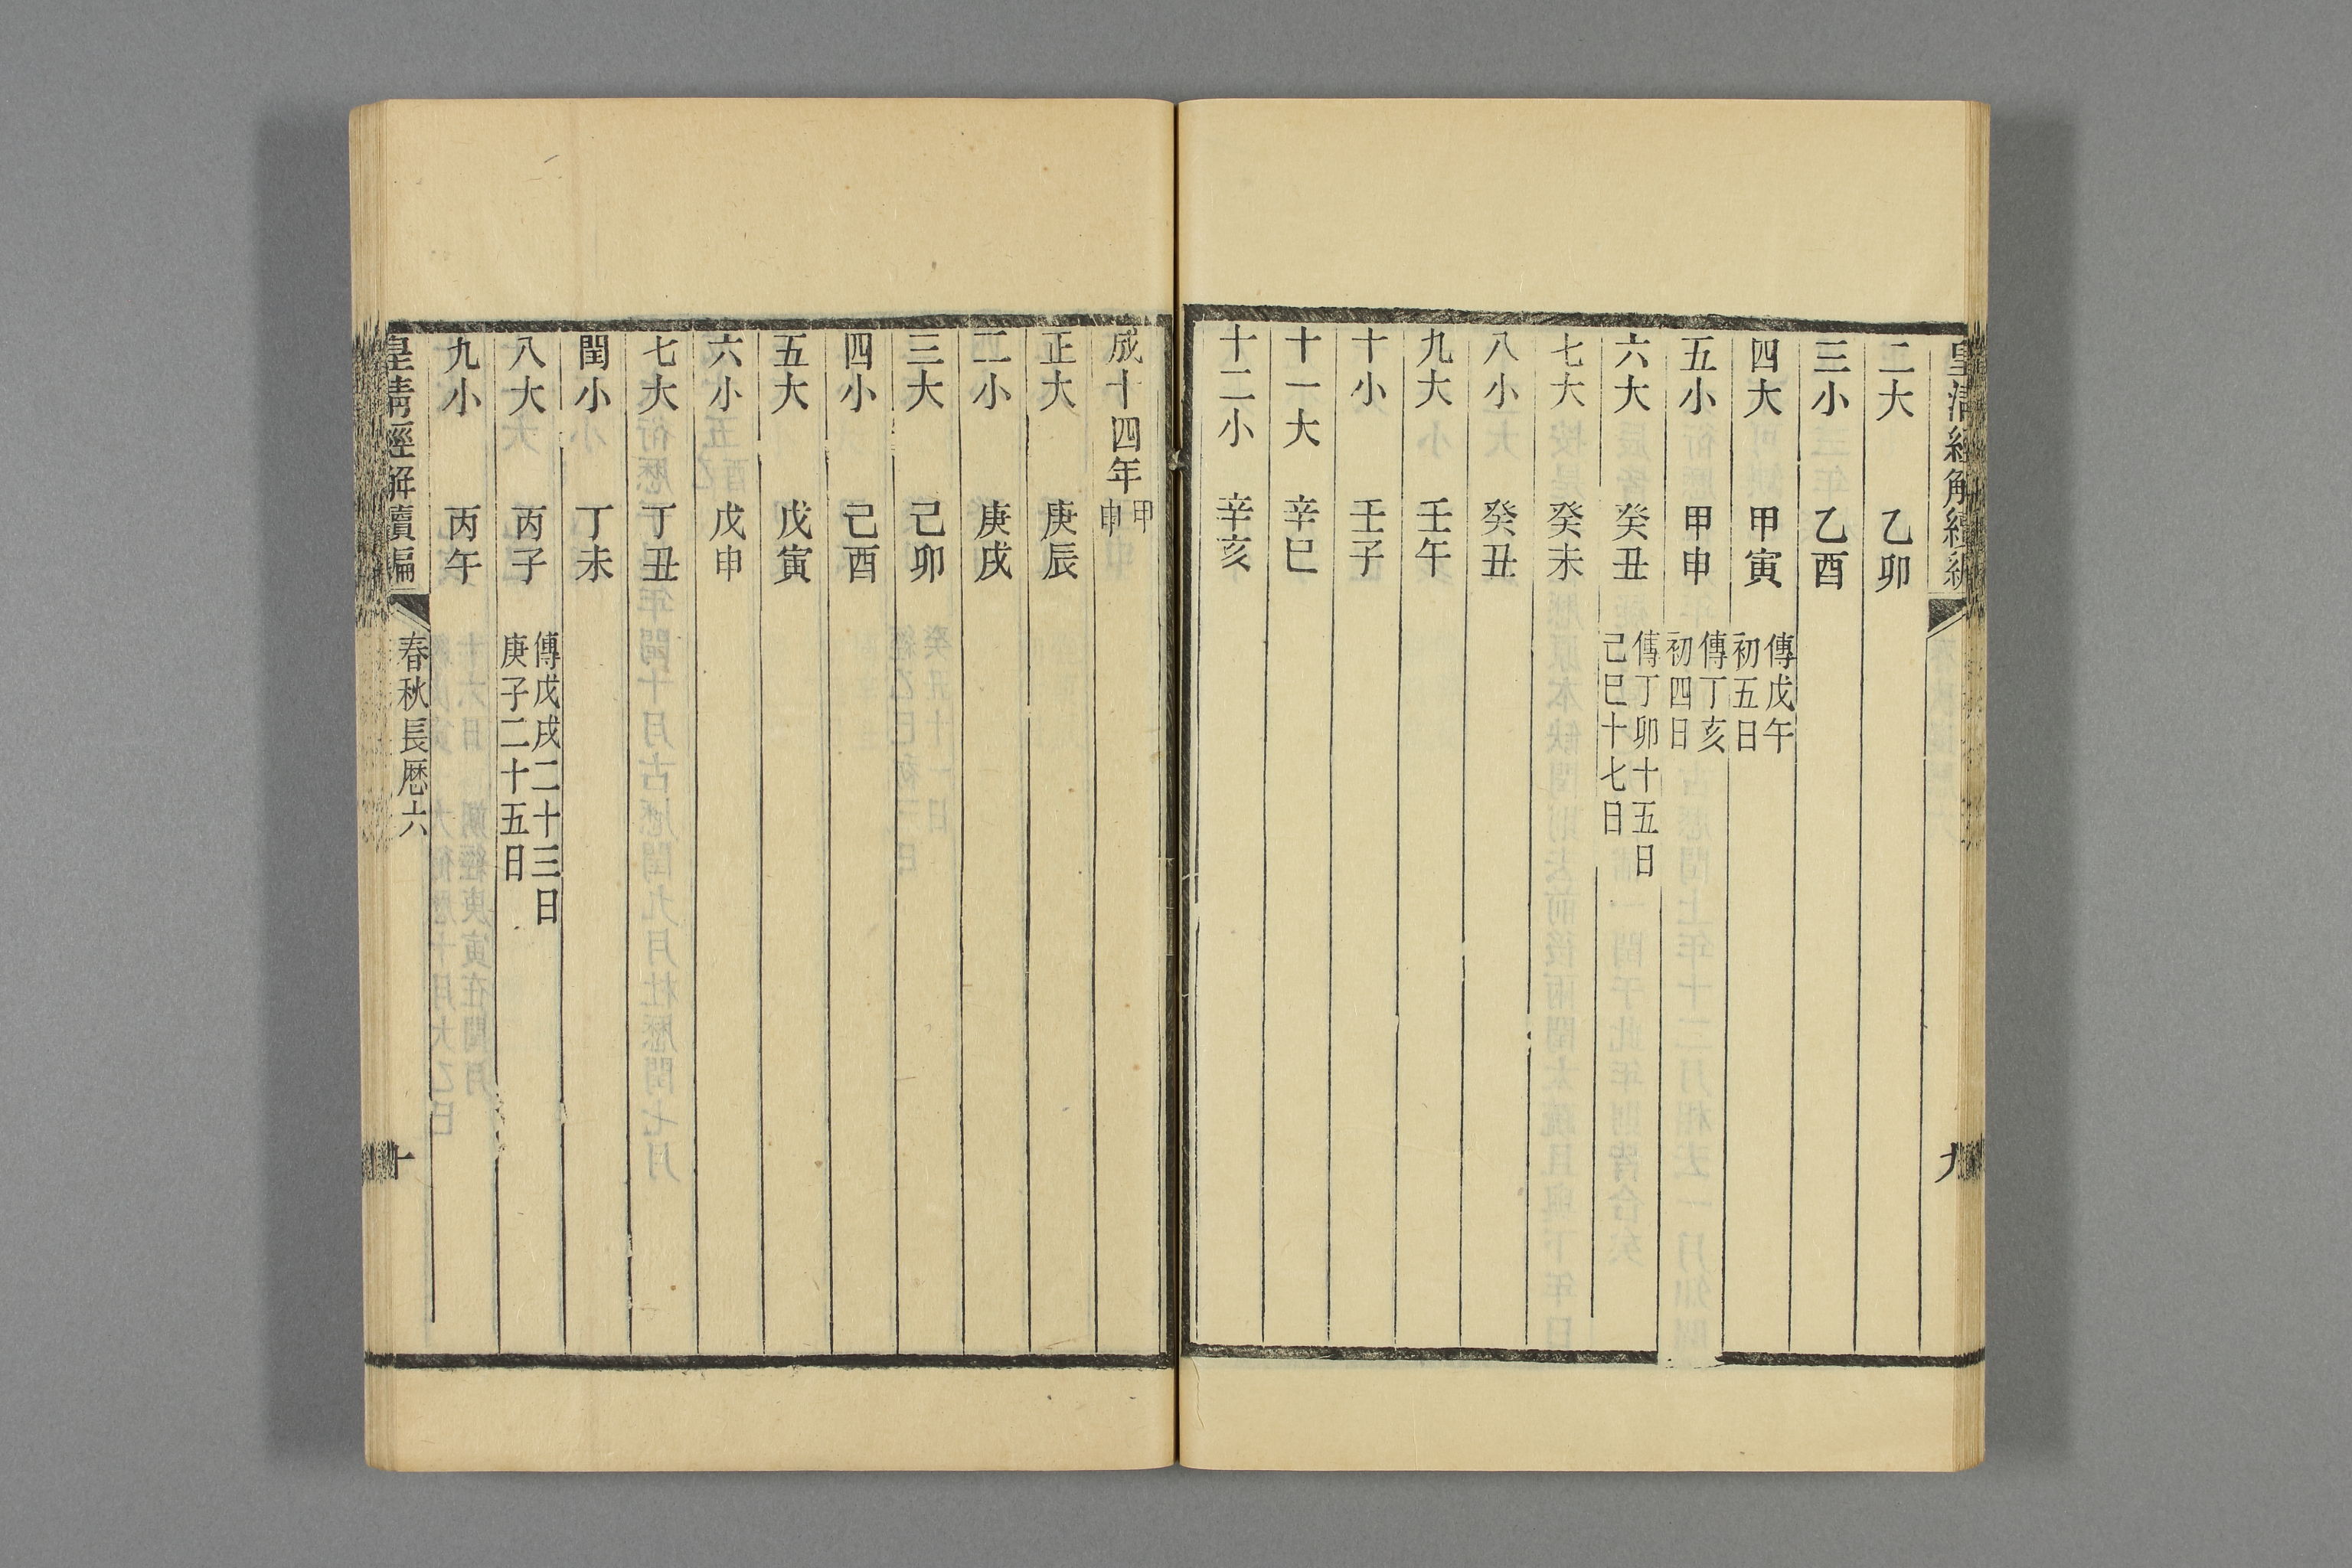 皇清經解續編
九
二大 乙卯
三小 乙酉
四大 甲寅 傳戊午
初五日
五小 甲申 傳丁亥
初四日
六大 癸丑 傳丁卯十五日
己巳十七日
七大 癸未
八小 癸丑
九大 壬午
十小 壬子
十一大 辛巳
十二小 辛亥
成十四年 甲
申
正大 庚辰
二小 庚戌
三大 己卯
四小 己酉
五大 戊寅
六小 戊申
七大 丁丑
閏小 丁未
八大 丙子 傳戊戌二十三日
庚子二十五日
九小 丙午
皇清經解續編 春秋長厯六 十